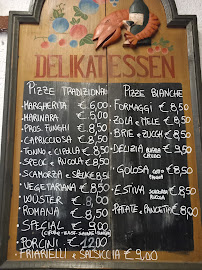 DELIKATESSEN
PIZZE TRADIZIONALI
MARGHERITA €6,00
MARINARA €5,00
PROS. FUNGHI €8,50
CAPRICCIOSA €8,50
TONNO e CIPOLLA €8,50
SPECK e RUCOLA €8,50
SCAMORZA e SPECK €8,50
VEGETARIANA €8,50
WÜSTER €8,00
ROMANA €8,50
SPECIAL €9,00
PORCINI €12,00
FRIARIELLI e SALSICCIA €9,00
PIZZE BIANCHE
FORMAGGI €8,50
ZOLA e MELE €8,50
BRIE e ZUCCHE €8,50
DELIZIA €9,50
GOLOSA €8,50
ESTIVA RUCOLA €8,50
PATATE e PANCETTA €8,00